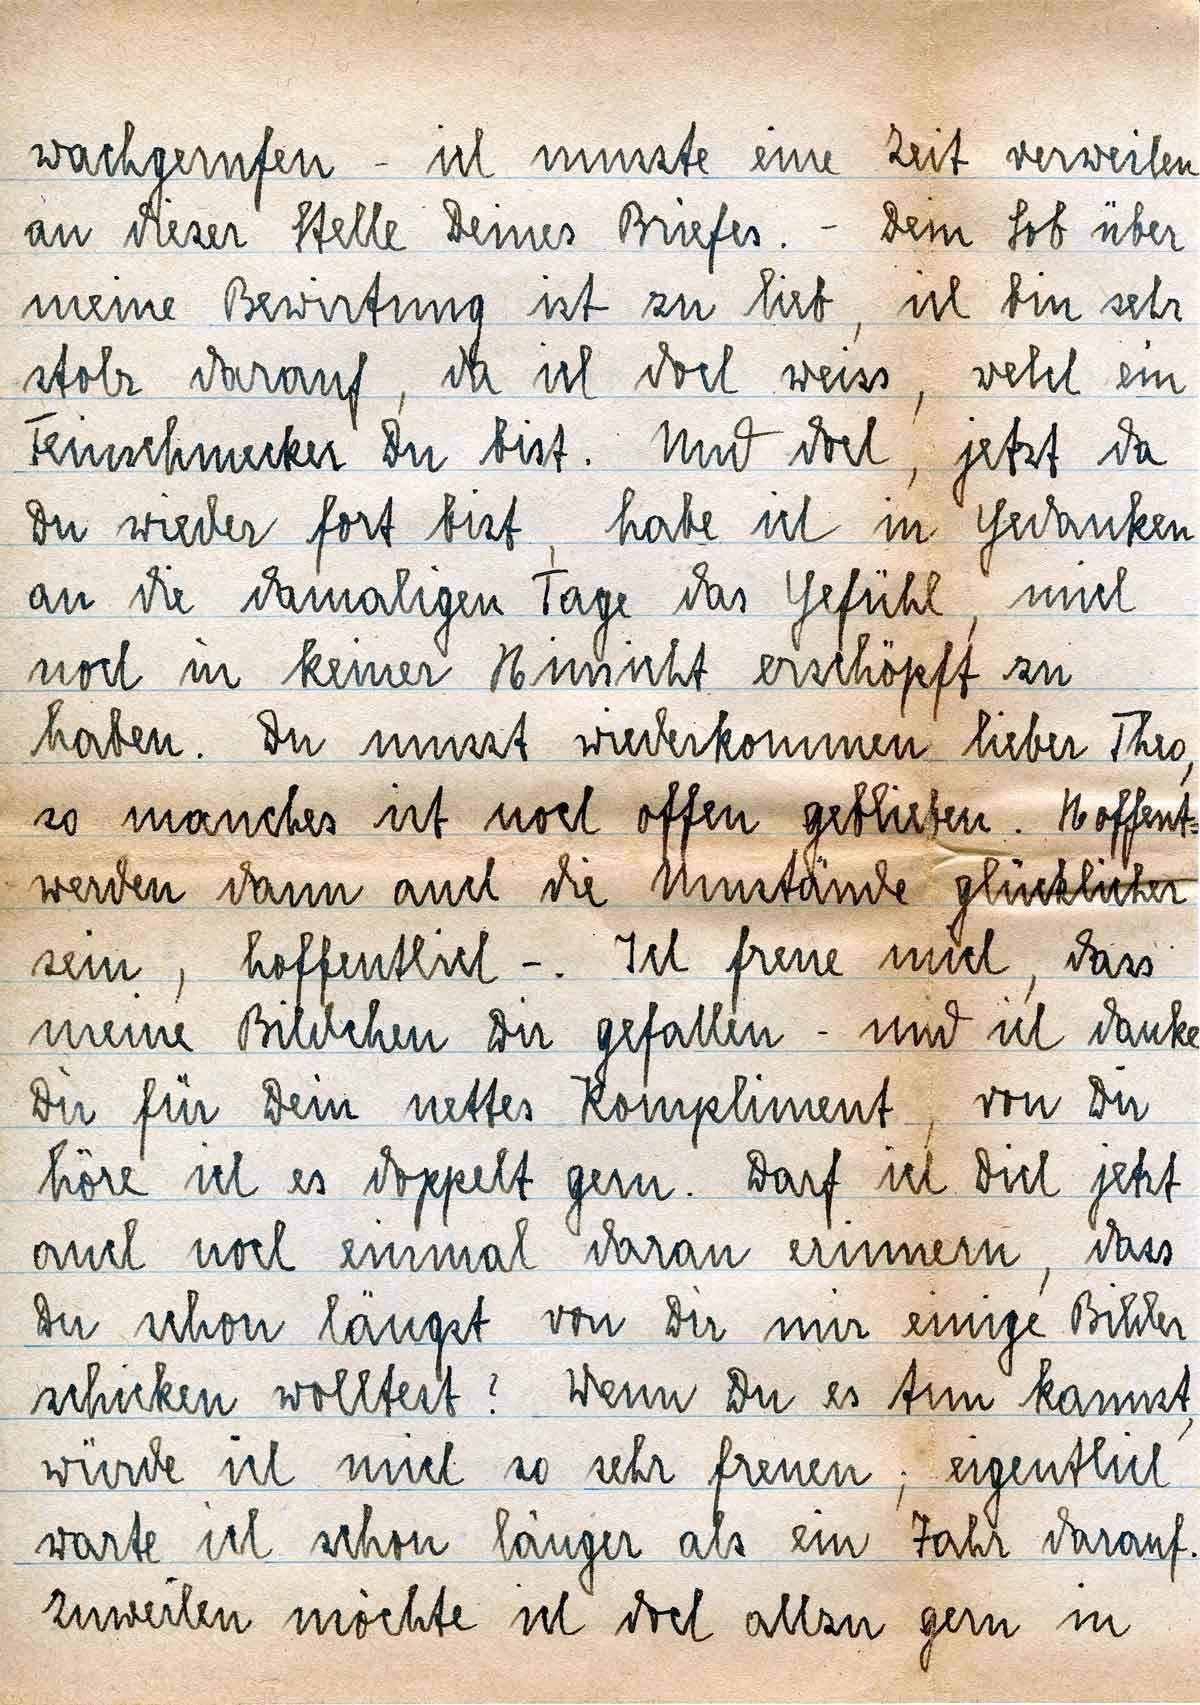 wachgerufen - ich musste eine Zeit verweilen
an dieser Stelle Deines Briefes. - Dein Lob über
meine Bewirtung ist zu lieb, ich bin sehr
stolz darauf, da ich doch weiss, welch ein
Feinschmecker Du bist. Und doch, jetzt da
Du wieder fort bist, habe ich in Gedanken
an die damaligen Tage das Gefühl, mich
noch in keiner Hinsicht erschöpft zu
haben. Du musst wiederkommen lieber Theo,
so manches ist noch offen geblieben. Hoffent=
werden dann auch die Umstände glücklicher
sein, hoffentlich -. Ich freue mich, dass
meine Bildchen Dir gefallen - und ich danke
Dir für Dein nettes Kompliment, von Dir
höre ich es doppelt gern. Darf ich Dich jetzt
auch noch einmal daran erinnern, dass
Du schon längst von Dir mir einige Bilder
schicken wolltest? Wenn Du es tun kannst,
würde ich mich so sehr freuen; eigentlich
warte ich schon länger als ein Jahr darauf.
Zuweilen möchte ich doch allzu gern in